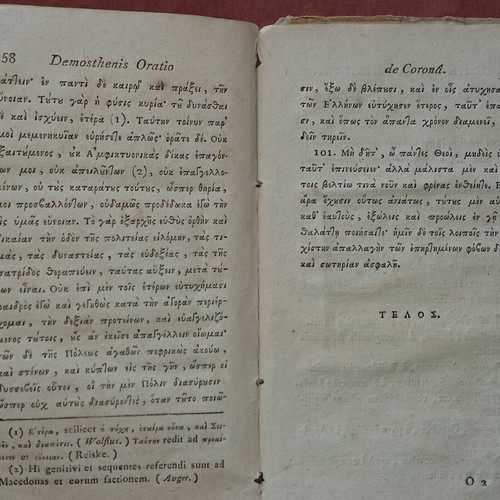 58 Demosthenis Oratio
ἐν παντὶ δὲ καιρῷ καὶ πράξει, τὴν
εὔνοιαν. Τύτυ γὰρ ἡ φύσις κυρία· τῦ δύνασθαι
δὲ καὶ ἰσχύειν, ἑτέρα (1). Ταύτην τοίνυν παρ'
μοὶ μεμενηκυῖαν εὑρήσετε ἁπλῶς· ὁρᾶτε δέ. Οὐκ
ἐξαιτύμενος, ὐκ Ἀμφικτυονικὰς δίκας ἐπαγόν-
ων μοι, ὐκ ἀπειλύντων (2), ὐκ ἐπαγγελλο-
ένων, ὐχὶ τὺς καταράτυς τύτυς, ὥσπερ θηρία,
μοι προσβαλλόντων, ὐδαμῶς προδέδωκα ἐγὼ τὴν
ἰς ὑμᾶς εὔνοιαν. Τὸ γὰρ ἐξαρχῆς εὐθὺς ὀρθὴν καὶ
δικαίαν τὴν ὁδὸν τῆς πολιτείας εἱλόμην, τὰς τι-
μὰς, τὰς δυναστείας, τὰς εὐδοξίας, τὰς τῆς
πατρίδος θεραπεύειν, ταύτας αὔξειν, μετὰ τύ-
ων εἶναι. Οὐκ ἐπὶ μὲν τοῖς ἑτέρων εὐτυχήμασι
φαιδρὸς ἐγὼ καὶ γεγηθὼς κατὰ τὴν ἀγορὰν περιέρ-
χομαι, τὴν δεξιὰν προτείνων, καὶ εὐαγγελιζό-
μενος τύτοις, ὓς ἂν ἐκεῖσε ἀπαγγέλλειν οἴωμαι·
τῶν δὲ τῆς Πόλεως ἀγαθῶν πεφρικὼς ἀκύω,
καὶ στένων, καὶ κύπτων εἰς τὴν γῆν, ὥσπερ οἱ
δυσσεβεῖς ὗτοι, οἳ τὴν μὲν Πόλιν διασύρυσιν,
ὥσπερ ὐχ αὑτὺς διασύροντες, ὅταν τῦτο ποιῶ-
(1) Ἑτέρα, scilicet ἡ τύχη,
(Wolfius.) Ταύτην redit ad προαί-
(Reiske.)
(2) Hi genitivi et sequentes referendi sunt ad
Macedonas et eorum factionem. (Auger.)
de Coronâ.
σιν, ἔξω δὲ βλέπυσι, καὶ ἐν οἷς ἀτυχησα
τῶν Ἑλλήνων εὐτύχησεν ἕτερος, ταῦτ' ἐπα
σι, καὶ ὅπως τὸν ἅπαντα χρόνον διαμενεῖ,
δεῖν τηρεῖν.
101. Μὴ δῆτ', ὦ πάντες Θεοὶ, μηδεὶς ὑ
ταῦτ' ἐπινεύσειεν· ἀλλὰ μάλιστα μὲν καὶ
τοις βελτίω τινὰ νῦν καὶ φρένας ἐνθείητε. Ε
ἄρα ἔχυσιν ὕτως ἀνιάτως, τύτυς μὲν αὐτ
καθ' ἑαυτὺς, ἐξώλεις καὶ προώλεις ἐν γῇ
θαλάττῃ ποιήσατε· ἡμῖν δὲ τοῖς λοιποῖς τὴν
χίστην ἀπαλλαγὴν τῶν ἐπηρτημένων φόβων δ
καὶ σωτηρίαν ἀσφαλῆ.
ΤΕΛΟΣ.
O 2